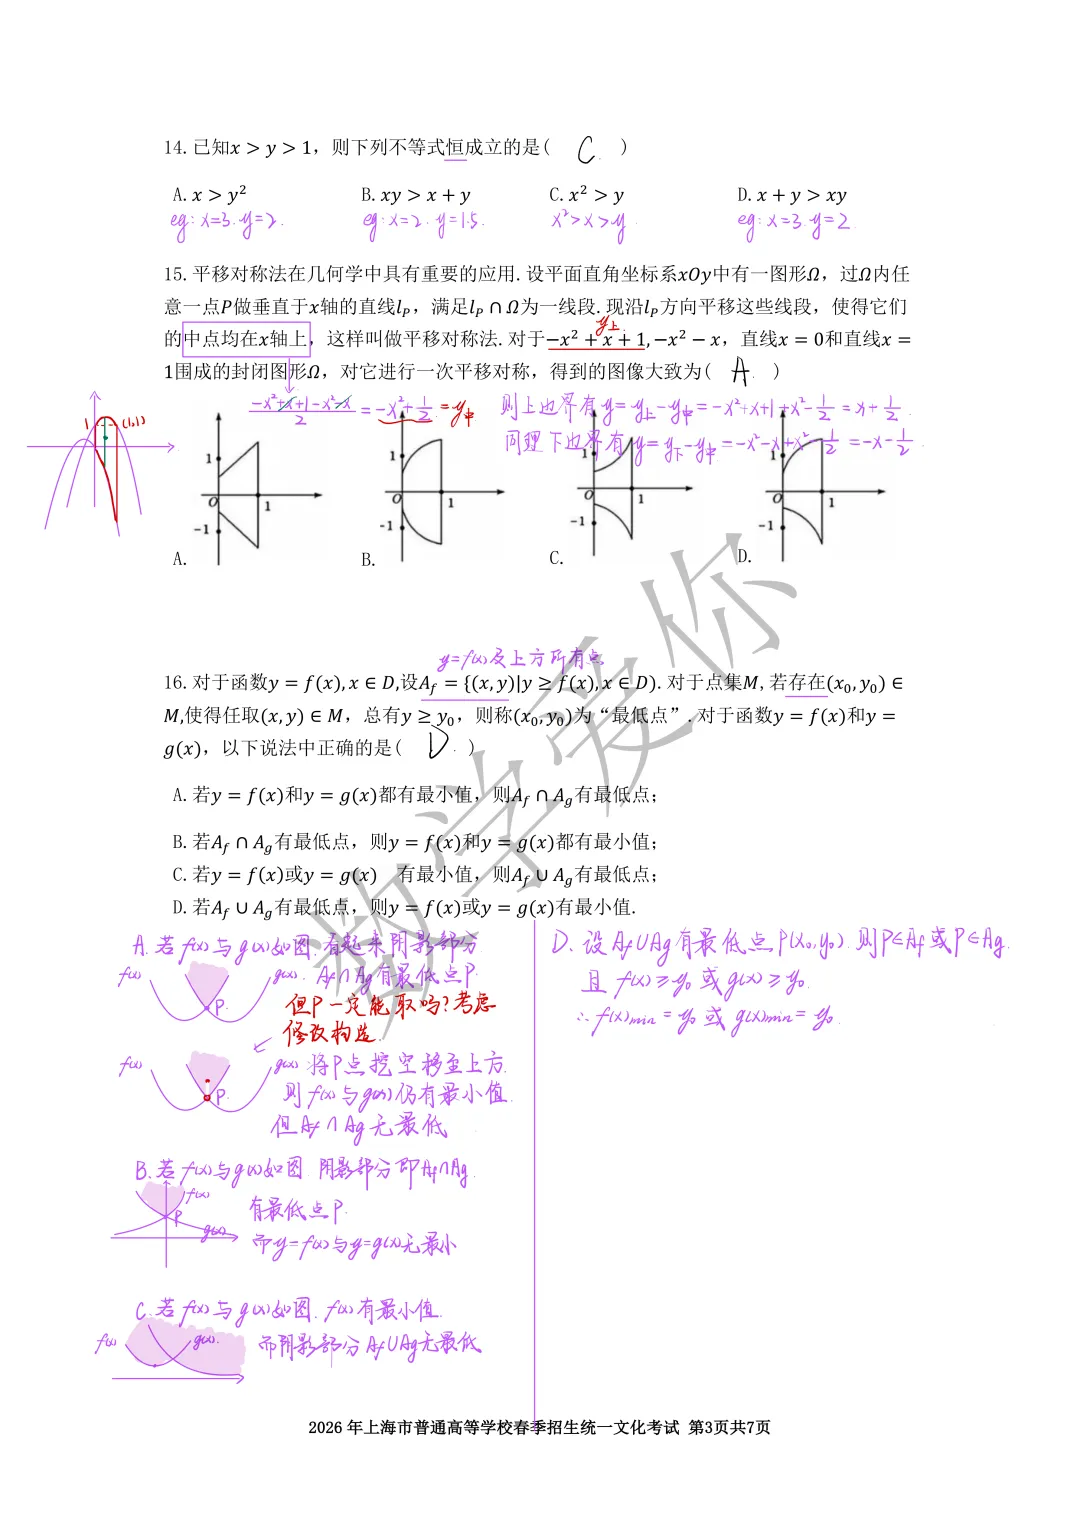 14.已知x > y > 1，则下列不等式恒成立的是( C )
A.x > y²  B.xy > x + y  C.x² > y  D.x + y > xy
eg: x=3.y=2.  eg: x=2. y=1.5.  x²>x>y.  eg: x=3.y=2.
15.平移对称法在几何学中具有重要的应用.设平面直角坐标系xOy中有一图形Ω，过Ω内任
意一点P做垂直于x轴的直线l_P，满足l_P ∩ Ω为一线段.现沿l_P方向平移这些线段，使得它们
y上
的中点均在x轴上，这样叫做平移对称法.对于−x² + x + 1,−x² − x，直线x = 0和直线x =
1围成的封闭图形Ω，对它进行一次平移对称，得到的图像大致为( A )
(-x²+x+1-x²-x)/2 = -x²+1/2 = y中
则上边界有y=y上-y中=-x²+x+1+x²-1/2=x+1/2.
同理下边界有y=y下-y中=-x²-x+x²-1/2=-x-1/2.
1 (1,1)
1 O 1 -1
1 O 1 -1
1 O 1 -1
1 O 1 -1
A.  B.  C.  D.
y=f(x)及上方所有点
16.对于函数y = f(x), x ∈ D,设A_f = {(x, y)|y ≥ f(x), x ∈ D}.对于点集M,若存在(x₀, y₀) ∈
M,使得任取(x, y) ∈ M，总有y ≥ y₀，则称(x₀, y₀)为“最低点”.对于函数y = f(x)和y =
g(x)，以下说法中正确的是( D )
A.若y = f(x)和y = g(x)都有最小值，则A_f ∩ A_g有最低点；
B.若A_f ∩ A_g有最低点，则y = f(x)和y = g(x)都有最小值；
C.若y = f(x)或y = g(x) 有最小值，则A_f ∪ A_g有最低点；
D.若A_f ∪ A_g有最低点，则y = f(x)或y = g(x)有最小值.
数学爱你
A.若f(x)与g(x)如图.看起来阴影部分
f(x) g(x). P. Af∩Ag有最低点P.
但P一定能取吗？考虑
修改构造.
f(x) g(x) P. 将P点挖空移至上方.
则f(x)与g(x)仍有最小值.
但Af∩Ag无最低
B.若f(x)与g(x)如图.阴影部分即Af∩Ag.
f(x) P g(x) 有最低点P.
而y=f(x)与y=g(x)无最小
C.若f(x)与g(x)如图.f(x)有最小值.
f(x) g(x). 而阴影部分Af∪Ag无最低
D.设Af∪Ag有最低点P(x₀,y₀).则P∈Af或P∈Ag.
且f(x)≥y₀或g(x)≥y₀.
∴f(x)min=y₀或g(x)min=y₀.
2026 年上海市普通高等学校春季招生统一文化考试 第3页共7页